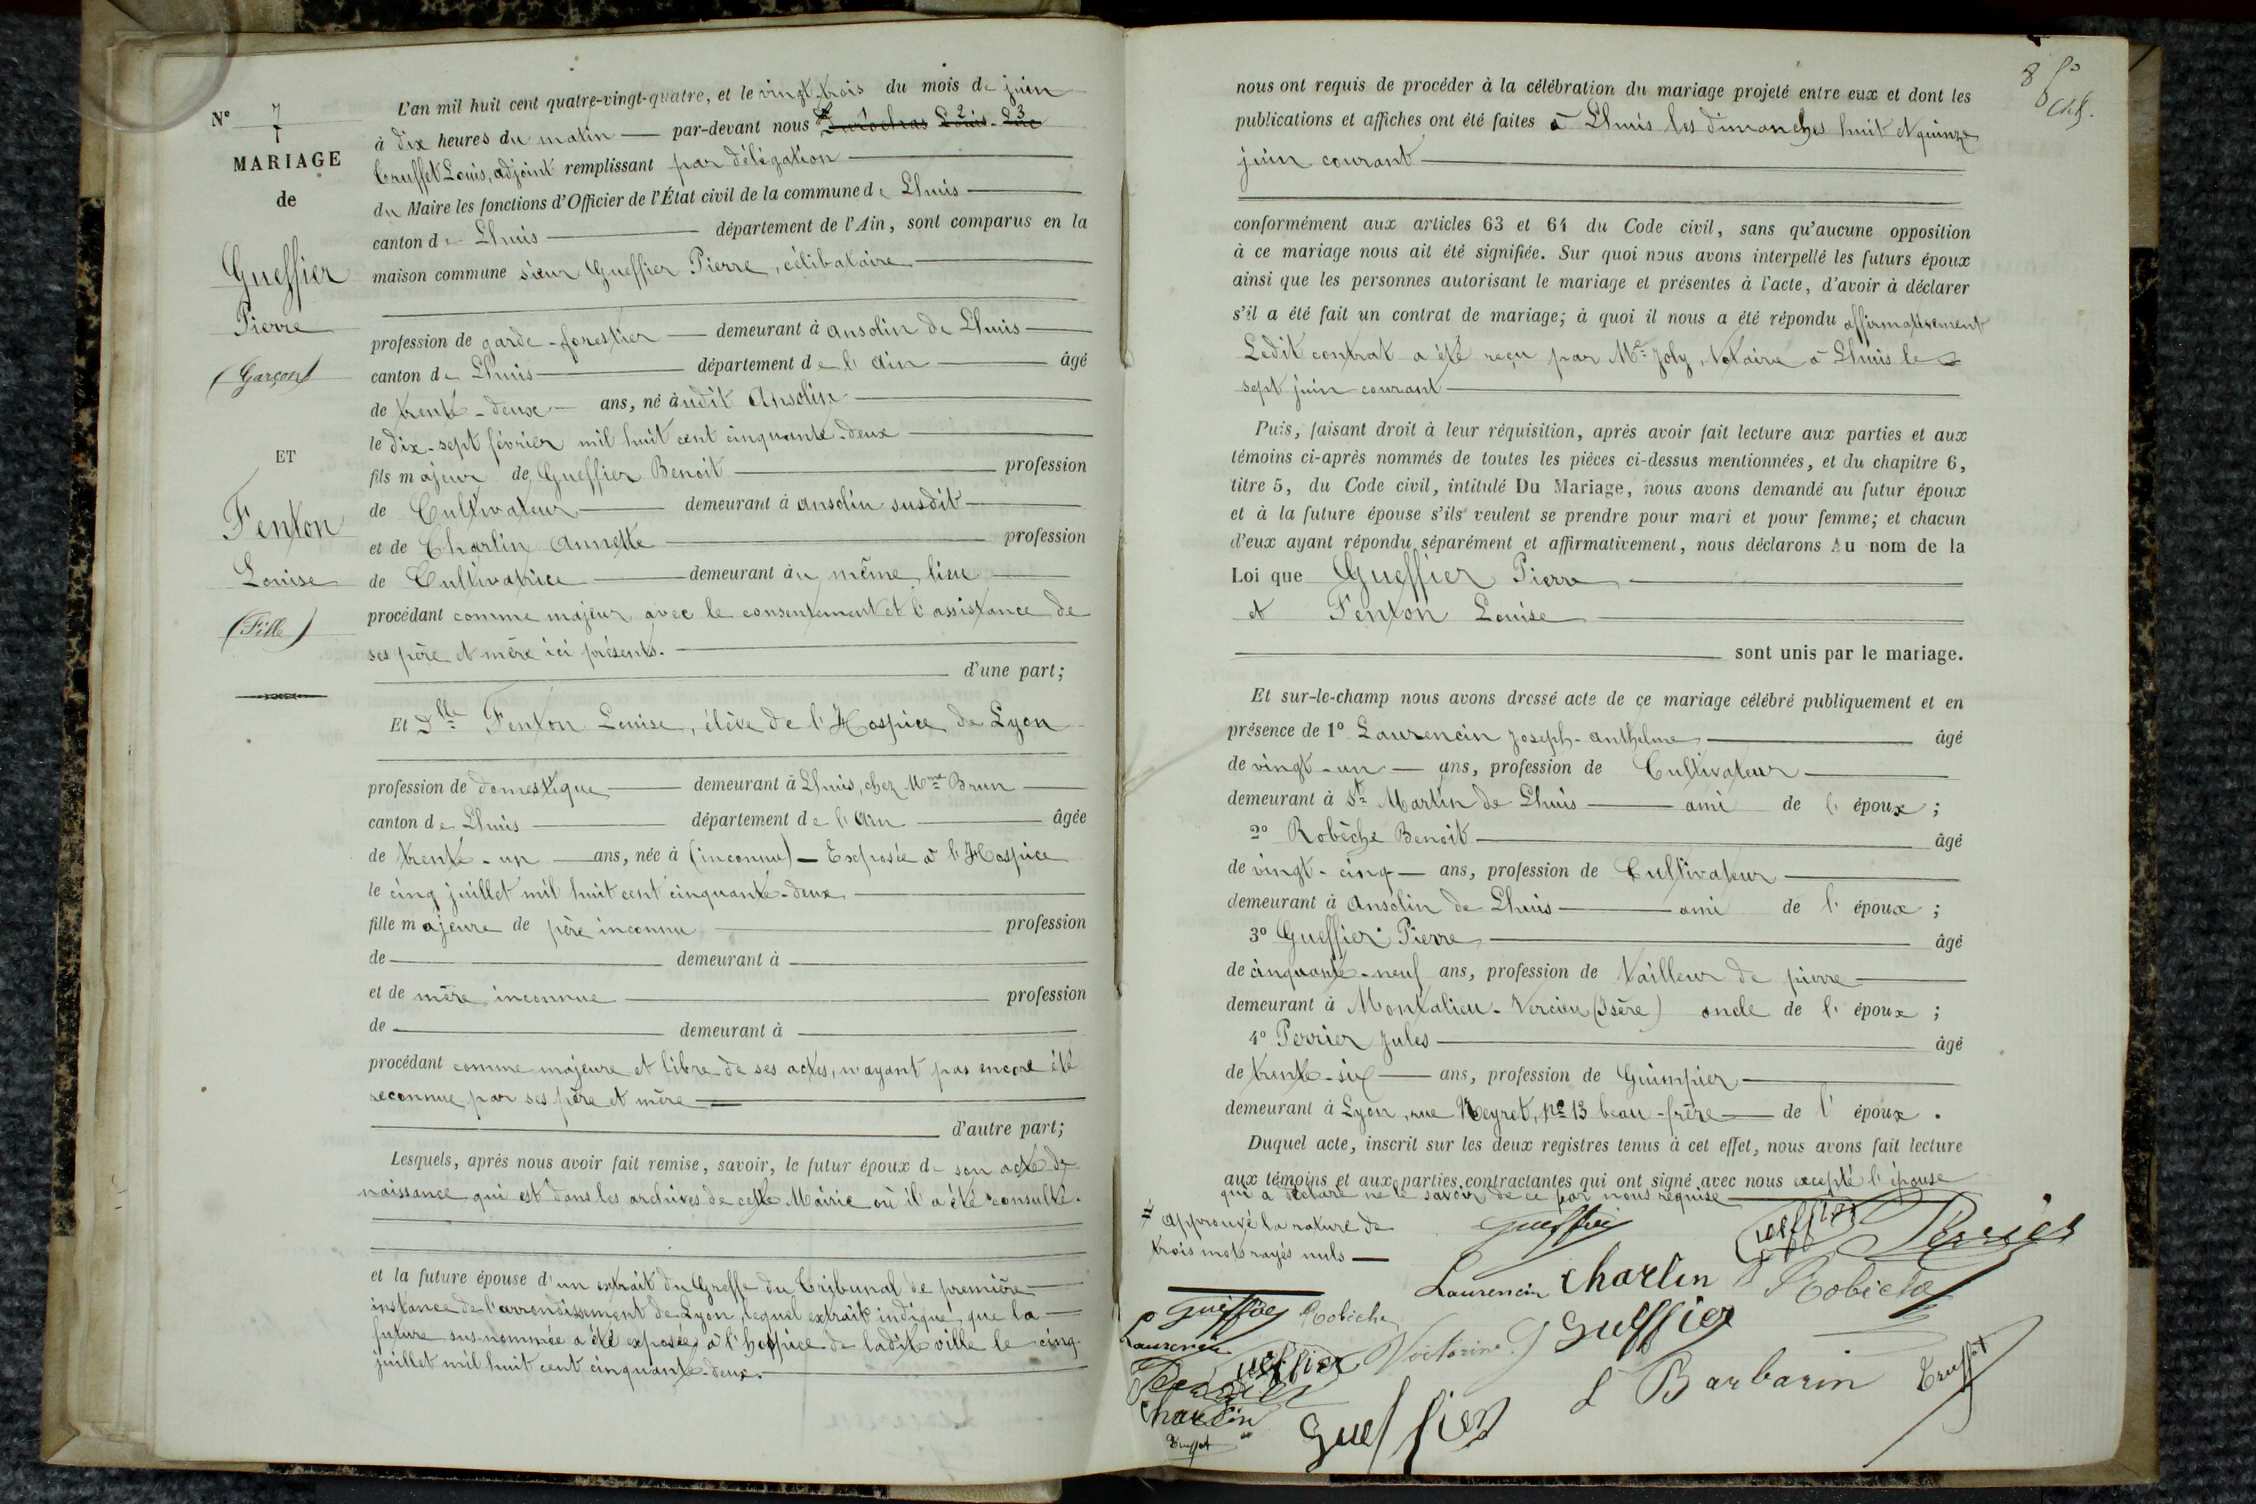 N° 7
MARIAGE
de
Gueffier
Pierre
(Garçon)
ET
Fenton
Louise
(Fille)
L'an mil huit cent quatre-vingt-quatre, et le vingt-trois du mois de juin
à dix heures du matin — par-devant nous Louis-Luc
Truffet Louis, adjoint remplissant par délégation
du Maire les fonctions d'Officier de l'État civil de la commune de Lhuis
canton de Lhuis département de l'Ain, sont comparus en la
maison commune sieur Gueffier Pierre, célibataire
profession de garde-forestier — demeurant à ansolin de Lhuis
canton de Lhuis département de l'ain âgé
de trente-deux ans, né àudit Ansolin
le dix-sept février mil huit cent cinquante-deux
fils majeur de Gueffier Benoit profession
de Cultivateur demeurant à ansolin susdit
et de Charlin Annette profession
de Cultivatrice demeurant àu même lieu
procédant comme majeur avec le consentement et l'assistance de
ses père et mère ici présents.
d'une part;
Et Dlle Fenton Louise, élève de l'Hospice de Lyon
profession de domestique demeurant à Lhuis, chez Mme Brun
canton de Lhuis département de l'ain âgée
de trente-un ans, née à (inconnu) — Exposée à l'Hospice
le cinq juillet mil huit cent cinquante-deux
fille majeure de père inconnu profession
de demeurant à
et de mère inconnue profession
de demeurant à
procédant comme majeure et libre de ses actes, n'ayant pas encore été
reconnue par ses père et mère
d'autre part;
Lesquels, après nous avoir fait remise, savoir, le futur époux de son acte de
naissance qui est dans les archives de cette Mairie où il a été consulté.
et la future épouse d'un extrait du Greffe du Tribunal de première
instance de l'arrondissement de Lyon, lequel extrait indique que la
future sus-nommée a été exposée à l'hospice de ladite ville le cinq
juillet mil huit cent cinquante-deux.
8
nous ont requis de procéder à la célébration du mariage projeté entre eux et dont les
publications et affiches ont été faites à Lhuis les dimanches huit et quinze
juin courant
conformément aux articles 63 et 64 du Code civil, sans qu'aucune opposition
à ce mariage nous ait été signifiée. Sur quoi nous avons interpellé les futurs époux
ainsi que les personnes autorisant le mariage et présentes à l'acte, d'avoir à déclarer
s'il a été fait un contrat de mariage; à quoi il nous a été répondu affirmativement
Ledit contrat a été reçu par Me Joly, Notaire à Lhuis le
sept juin courant
Puis, faisant droit à leur réquisition, après avoir fait lecture aux parties et aux
témoins ci-après nommés de toutes les pièces ci-dessus mentionnées, et du chapitre 6,
titre 5, du Code civil, intitulé Du Mariage, nous avons demandé au futur époux
et à la future épouse s'ils veulent se prendre pour mari et pour femme; et chacun
d'eux ayant répondu séparément et affirmativement, nous déclarons Au nom de la
Loi que Gueffier Pierre
et Fenton Louise
sont unis par le mariage.
Et sur-le-champ nous avons dressé acte de ce mariage célébré publiquement et en
présence de 1° Laurencin Joseph-anthelme âgé
de vingt-un — ans, profession de Cultivateur
demeurant à St Martin de Lhuis ami de l'époux;
2° Robèche Benoit âgé
de vingt-cinq — ans, profession de Cultivateur
demeurant à ansolin de Lhuis ami de l'époux;
3° Gueffier Pierre âgé
de cinquante-neuf ans, profession de tailleur de pierre
demeurant à Montalieu-Vercieu (Isère) oncle de l'époux;
4° Perrier Jules âgé
de trente-six — ans, profession de Guimpier
demeurant à Lyon, rue Neyret, n° 13 beau-frère de l'époux.
Duquel acte, inscrit sur les deux registres tenus à cet effet, nous avons fait lecture
aux témoins et aux parties contractantes qui ont signé avec nous excepté l'épouse
qui a déclaré ne le savoir de ce par nous requise
≠ Approuvé la rature de
trois mots rayés nuls —
Gueffier
Gueffier
Perrier
Laurencin Charlin
Robèche
Gueffier Robèche
Laurencin
Gueffier
Victorine Gueffier
Perrier
Charlin
Truffet
Gueffier
L Barbarin
Truffet